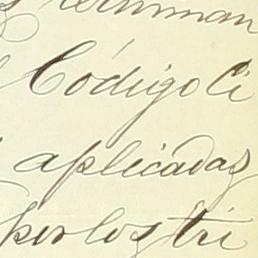 Código Ci
aplicadas
por los tri